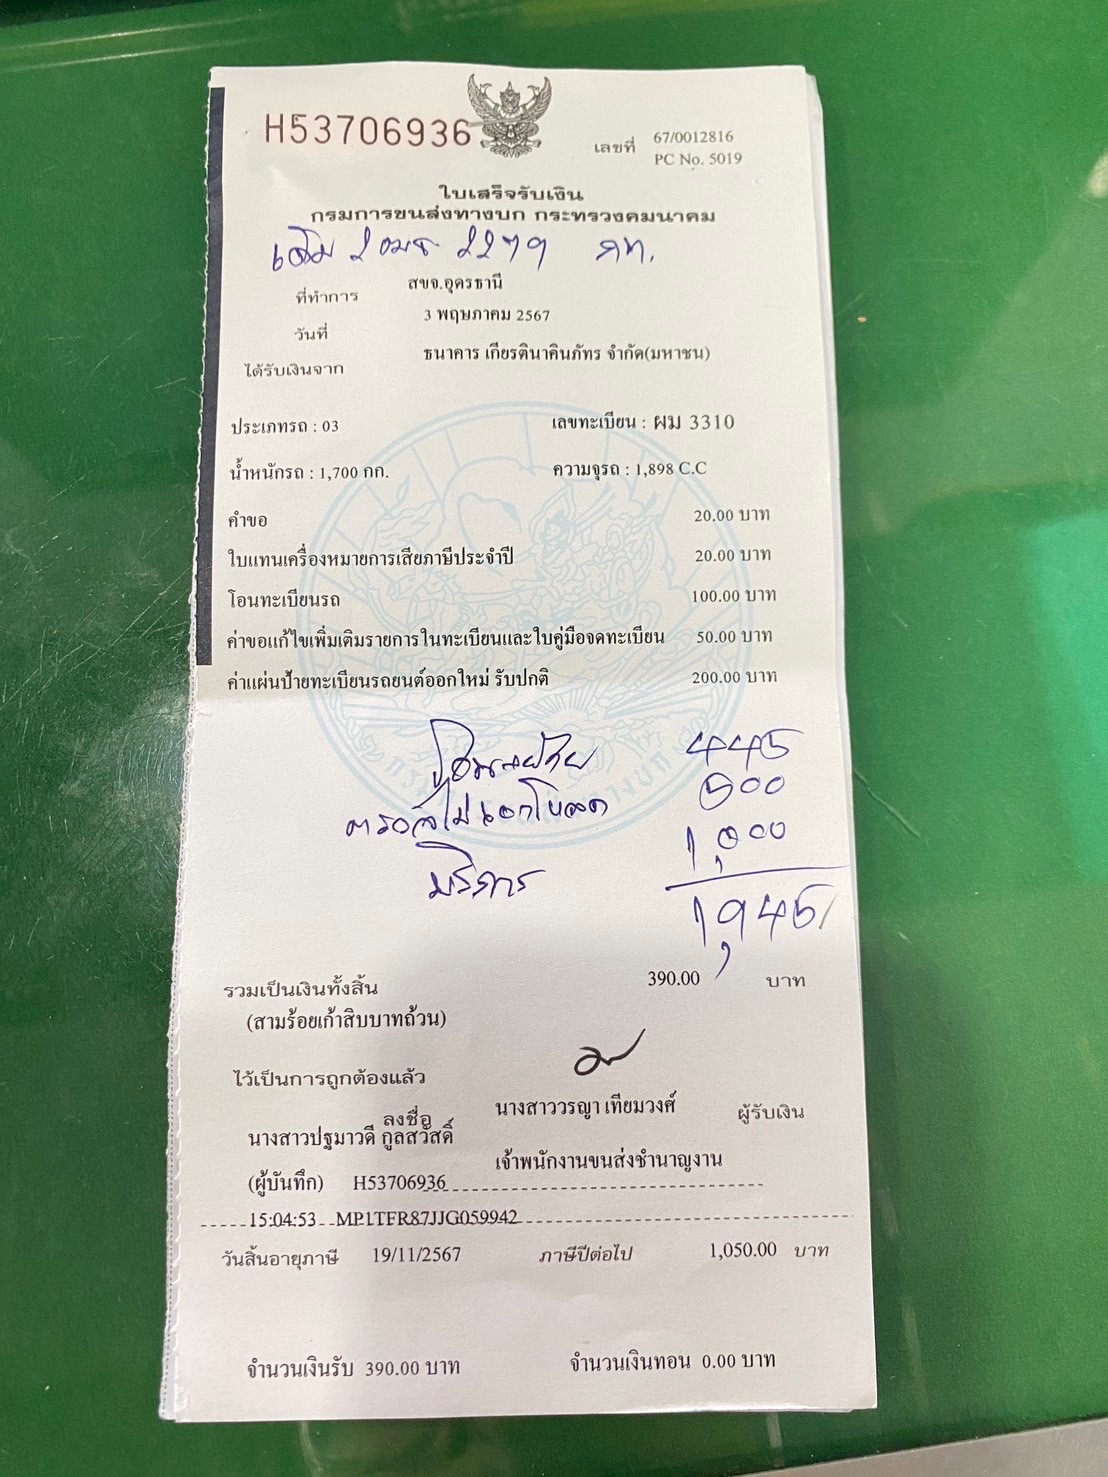 H53706936
เลขที่ 67/0012816
PC No. 5019
ใบเสร็จรับเงิน
กรมการขนส่งทางบก กระทรวงคมนาคม
เดิม 2 ๒๗๙ กท.
ที่ทำการ สขจ.อุดรธานี
วันที่ 3 พฤษภาคม 2567
ได้รับเงินจาก ธนาคาร เกียรตินาคินภัทร จำกัด(มหาชน)
ประเภทรถ : 03 เลขทะเบียน : ผม 3310
น้ำหนักรถ : 1,700 กก. ความจุรถ : 1,898 C.C
คำขอ 20.00 บาท
ใบแทนเครื่องหมายการเสียภาษีประจำปี 20.00 บาท
โอนทะเบียนรถ 100.00 บาท
ค่าขอแก้ไขเพิ่มเติมรายการในทะเบียนและใบคู่มือจดทะเบียน 50.00 บาท
ค่าแผ่นป้ายทะเบียนรถยนต์ออกใหม่ รับปกติ 200.00 บาท
๔๔๕
๕๐๐
บริการ ๑,๐๐๐
๑,๙๔๕
รวมเป็นเงินทั้งสิ้น 390.00 บาท
(สามร้อยเก้าสิบบาทถ้วน)
ไว้เป็นการถูกต้องแล้ว
ลงชื่อ นางสาววรญา เทียมวงศ์ ผู้รับเงิน
นางสาวปฐมาวดี กูลสวัสดิ์
เจ้าพนักงานขนส่งชำนาญงาน
(ผู้บันทึก) H53706936
15:04:53 MP1TFR87JJG059942
วันสิ้นอายุภาษี 19/11/2567 ภาษีปีต่อไป 1,050.00 บาท
จำนวนเงินรับ 390.00 บาท จำนวนเงินทอน 0.00 บาท